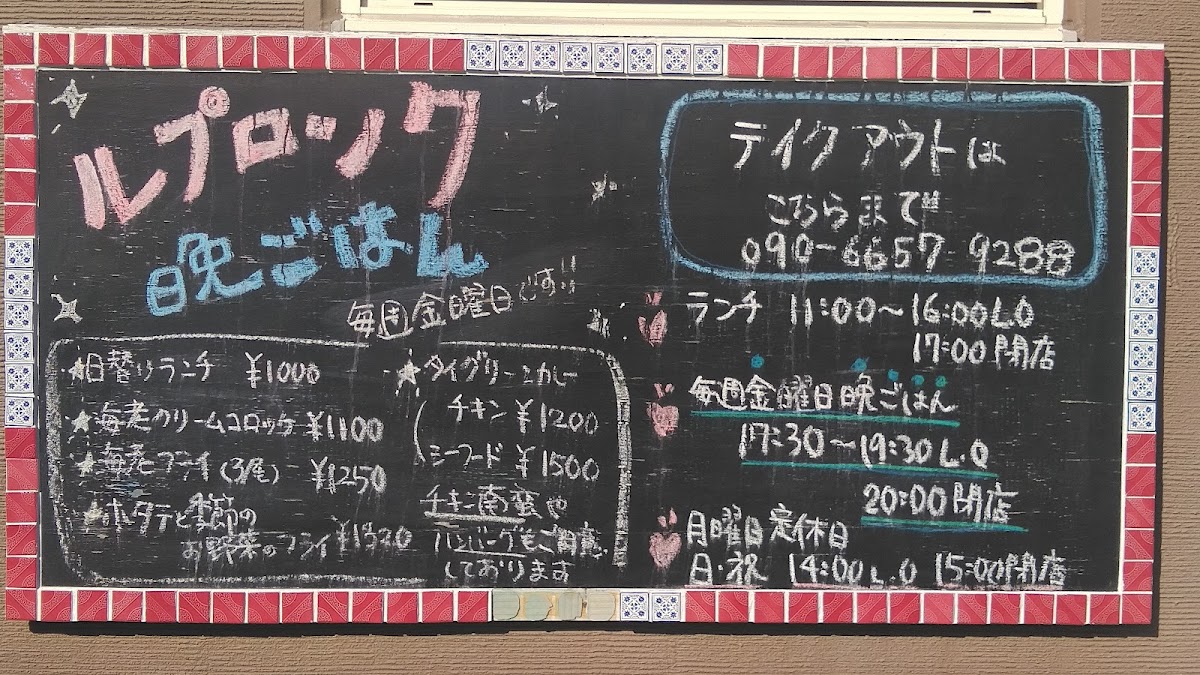 ルプロック
晩ごはん
毎週金曜日です!!
★日替りランチ ¥1000
★海老クリームコロッケ ¥1100
★海老フライ(3尾) ¥1250
★ホタテと季節の
お野菜のフライ ¥1320
★タイグリーンカレー
チキン ¥1200
シーフード ¥1500
チキン南蛮や
ハンバーグもご用意
しております
テイクアウトは
こちらまで
090-6657 9288
ランチ 11:00~16:00L.O
17:00閉店
毎週金曜日晩ごはん
17:30~19:30L.O
20:00閉店
月曜日定休日
日・祝 14:00L.O 15:00閉店